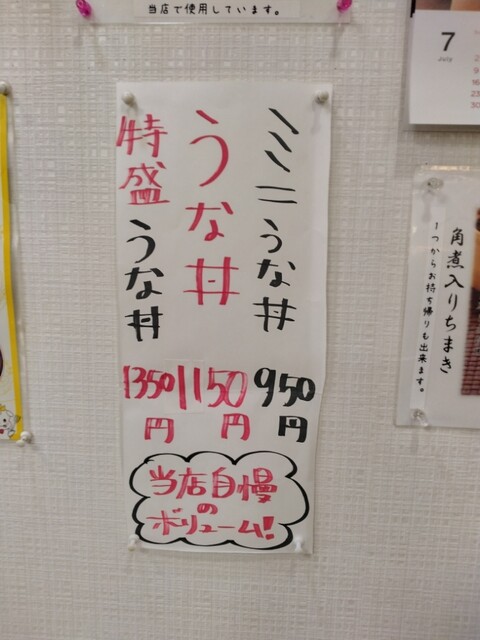 当店で使用しています。
ミニうな丼
950円
うな丼
1150円
特盛うな丼
1350円
当店自慢
の
ボリューム!
7
July
2
9
16
23
30
角煮入りちまき
1つからお持ち帰りも出来ます。